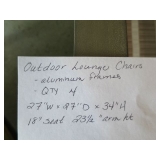 Outdoor Lounge Chairs
- aluminum frames
- QTY 4
27"W x 37"D x 34"H
18" seat 23½" arm ht